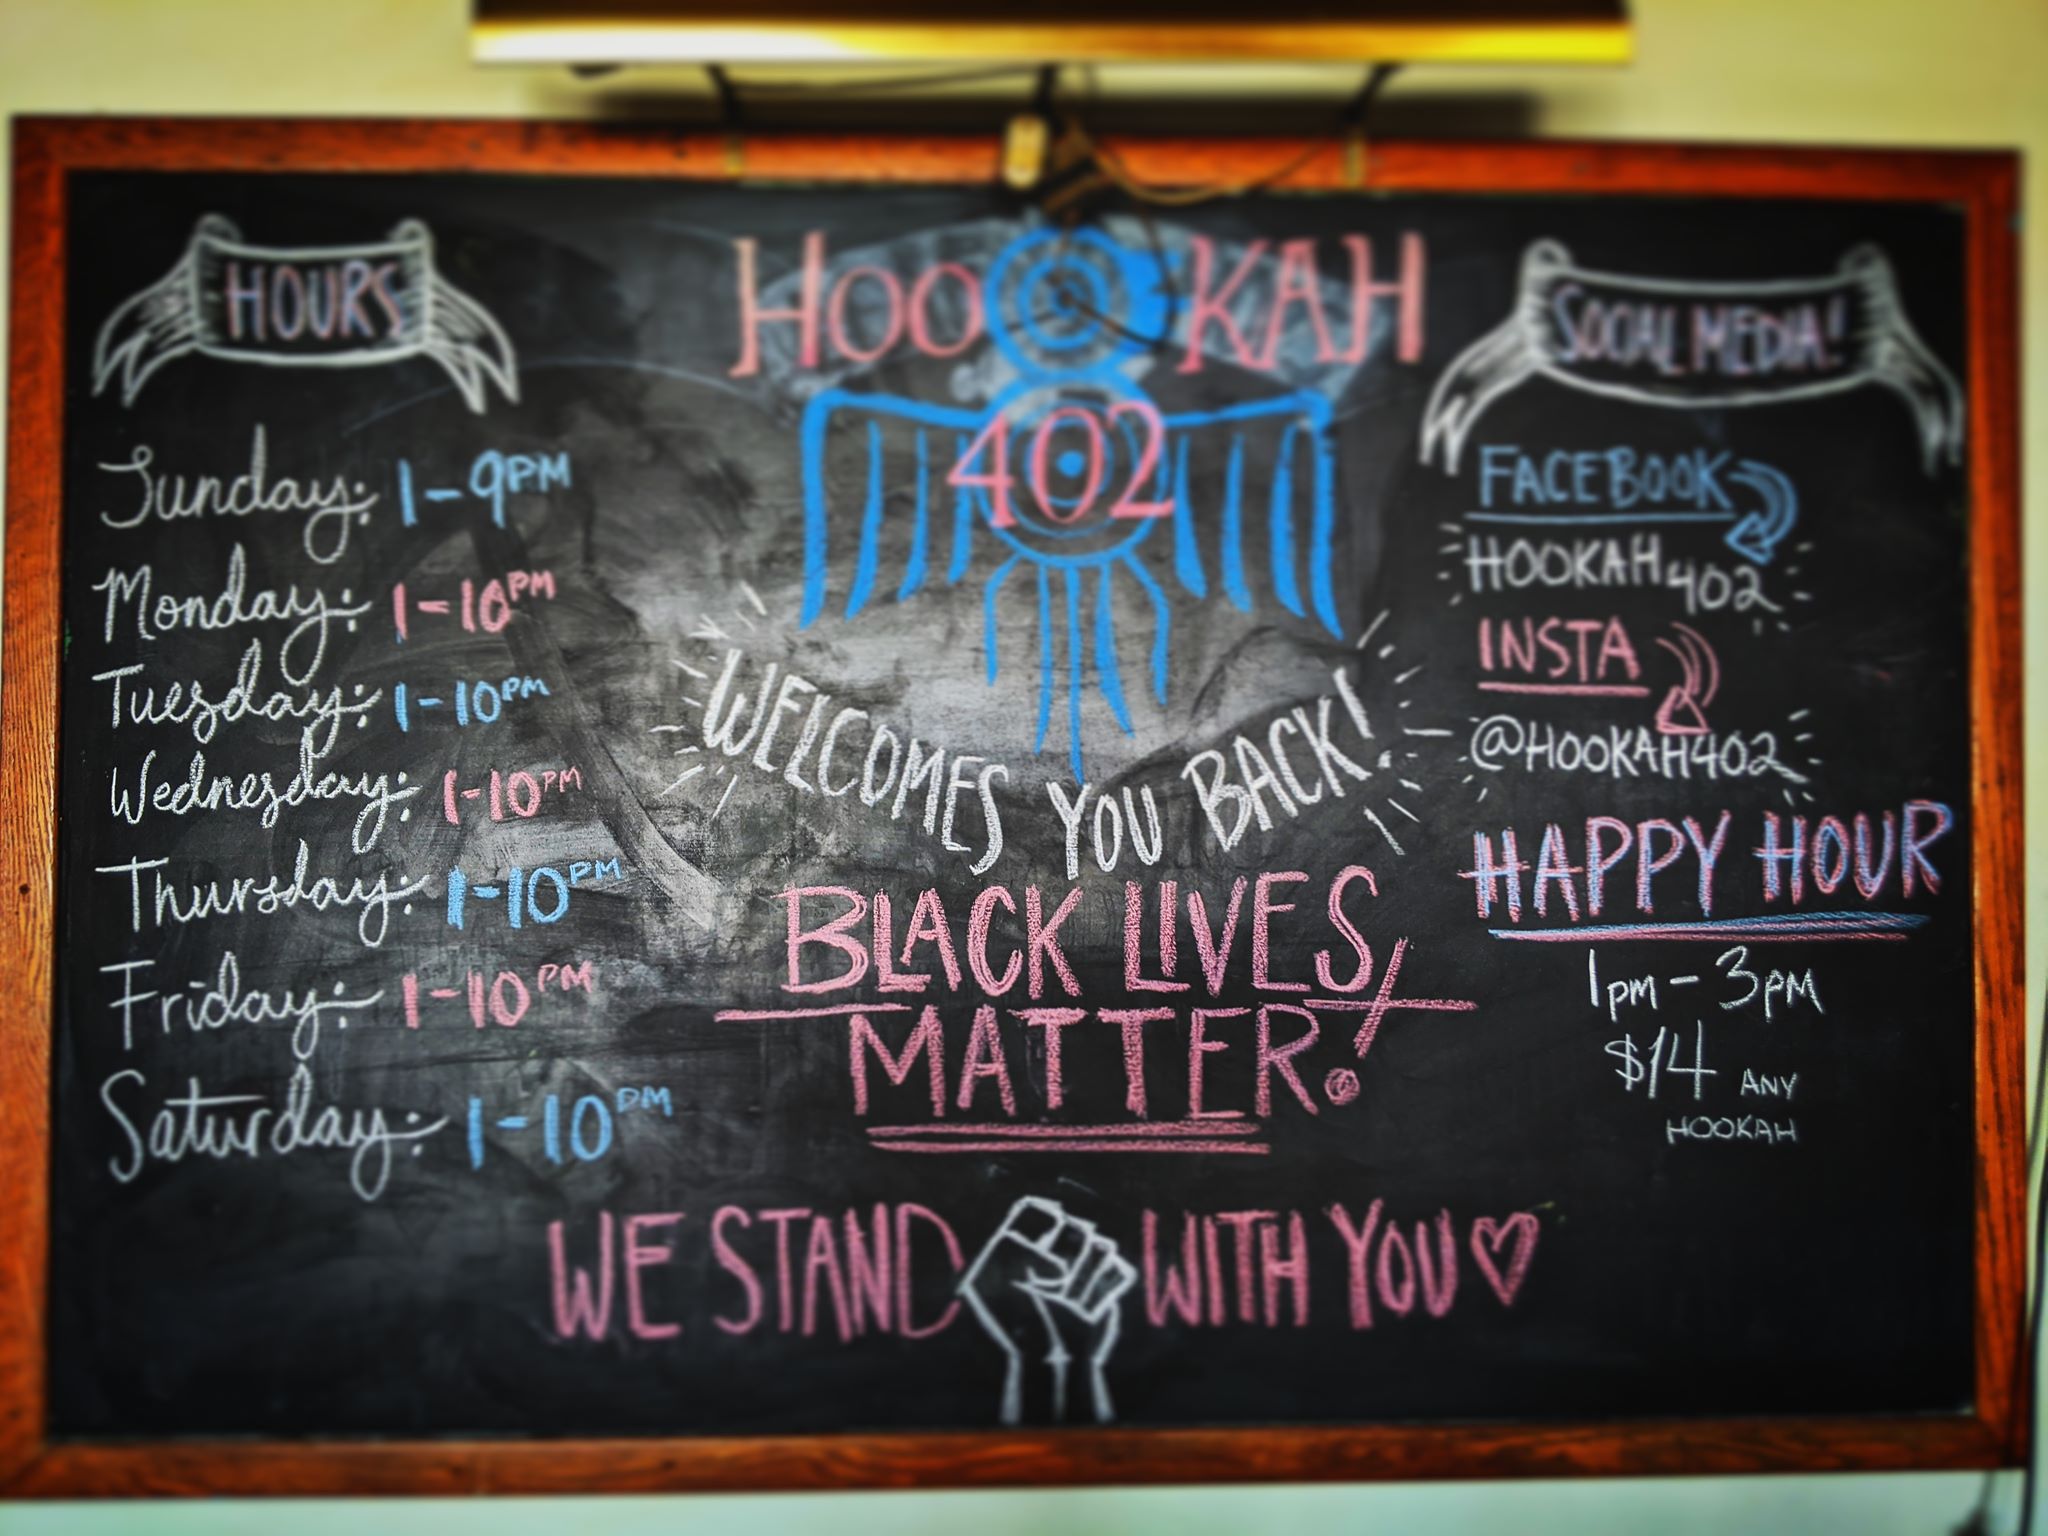 HOURS
Sunday: 1-9PM
Monday: 1-10PM
Tuesday: 1-10PM
Wednesday: 1-10PM
Thursday: 1-10PM
Friday: 1-10PM
Saturday: 1-10PM
HOOKAH
402
WELCOMES YOU BACK!
BLACK LIVES
MATTER!
WE STAND WITH YOU
SOCIAL MEDIA!
FACEBOOK
HOOKAH402
INSTA
@HOOKAH402
HAPPY HOUR
1PM - 3PM
$14 ANY
HOOKAH